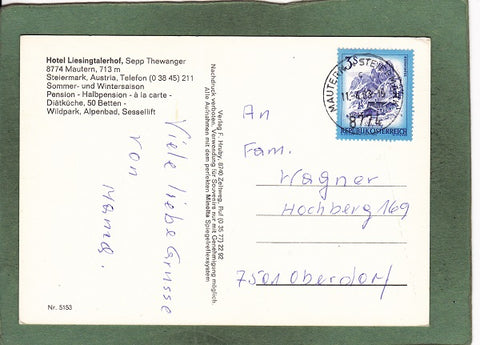 Hotel Liesingtalerhof, Sepp Thewanger
8774 Mautern, 713 m
Steiermark, Austria, Telefon (0 38 45) 211
Sommer- und Wintersaison
Pension - Halbpension - à la carte -
Diätküche, 50 Betten -
Wildpark, Alpenbad, Sessellift
Viele liebe Grüsse
von Mama.
Nr. 5153
Verlag F. Hruby, 8740 Zeltweg, Ruf (0 35 77) 22 92
Nachdruck verboten. Verwendung für Souvenirs nur mit Genehmigung möglich.
Alle Aufnahmen mit dem perfekten Minolta Spiegelreflexsystem
REPUBLIK ÖSTERREICH
8774
An
Fam.
Wagner
Hochberg 169
7501 Oberdorf